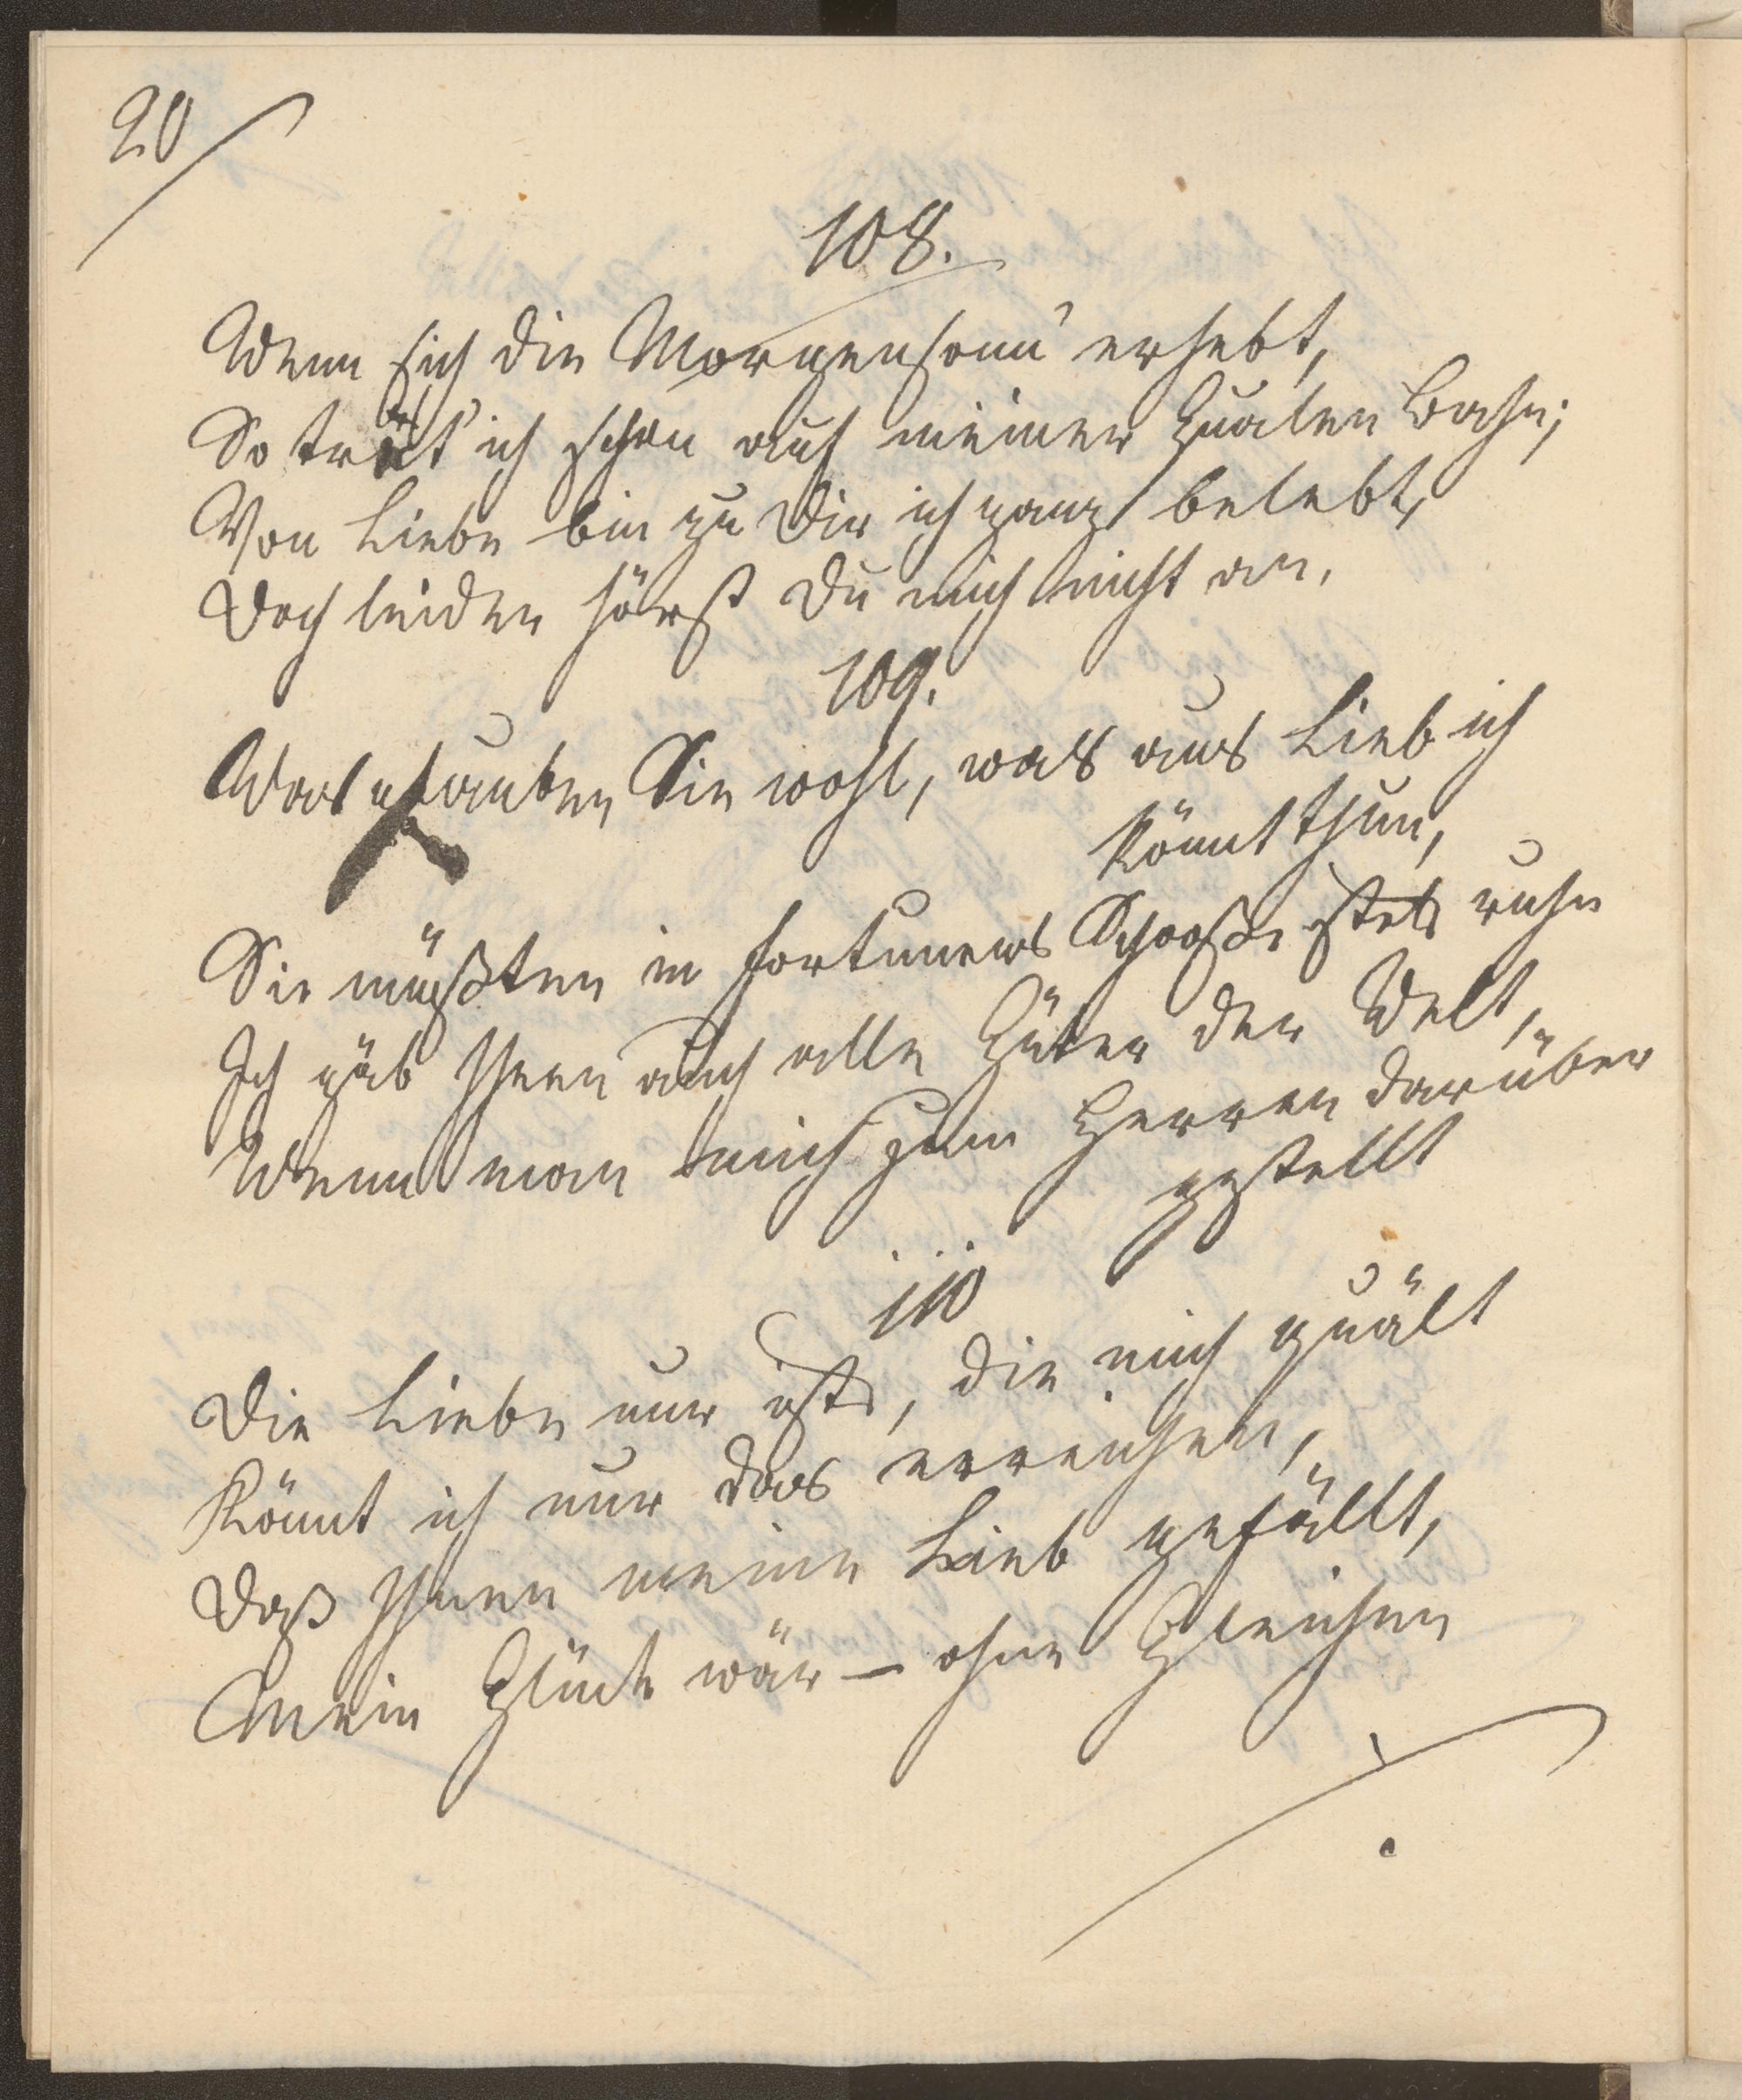 20
108.
Wenn sich die Morgensonn' erhebt,
So trät' ich schon auf meiner Qualen Bahn;
Von Liebe bin zu Dir ich ganz belebt,
Doch leider hörst Du mich nicht an.
109.
Was glauben Sie wohl, was aus Lieb ich
könnt thun,
Sie müßten in Fortunens Schooße stets ruhn
Ich gäb Ihnen auch alle Güter der Welt,
Wenn man mich zum Herren darüber
gestellt
110
Die Liebe nur ists, die mich quält
Könnt ich nur das erreichen,
Daß Ihnen meine Lieb gefällt,
Mein Glück wär – ohne Gleichen